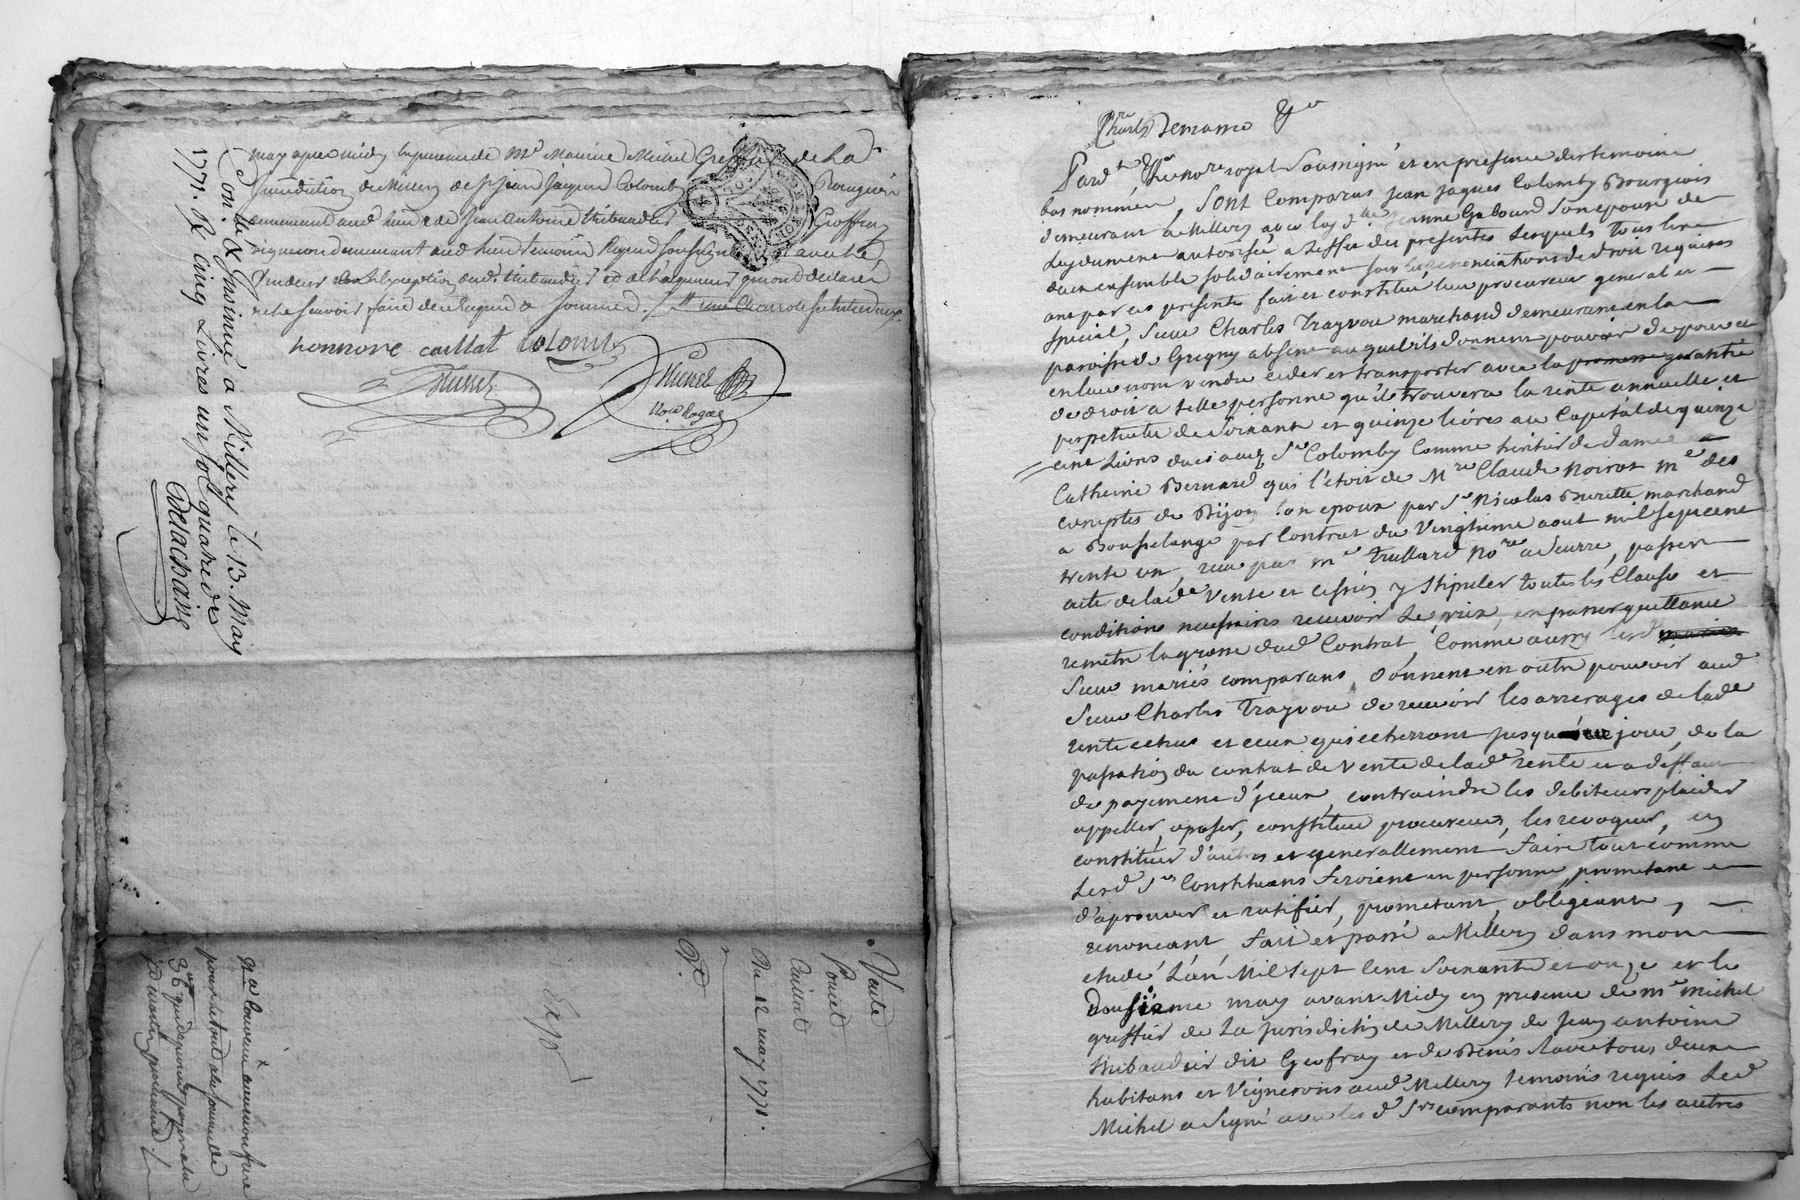 may apres midy en presence de Me Maurice Michel Greffier de La
Juridiction de Millery de Sr Jean Jaques Colomby Bourgeois
demeurant aud lieu & de Jean Antoine thibaudier Geoffray
vigneron demeurant aud lieu temoins Requis soussignés avec led
vendeur a l'exception dud thibaudier et de l'acquereur qui ont declaré
ne le scavoir faire de ce Requis & sommés
honnore caillat Colomby
Michel
Nore Royal
Con. lé & Insinué a Millery le 13. May
1771. R. cinq Livres un sol quatre drs
Delachaise
Vente
Poncet
Caillat
Du 12 may 1771.
Expo
Charles Demanne
Pardt Le nore royal Soussigné et en presence des temoins
bas nommés, sont Comparus Jean Jaques Colomby Bourgeois
demeurant a Millery avec lad. dlle Jeanne Gabourd son epouse de
luy dument autorisée a l'effet des presentes Lesquels tous les
deux ensemble solidairement sous les renonciations de droit requises
ont par ces presentes fait et constitué leur procureur general et
special, sieur Charles Trayvou marchand demeurant en la
paroisse de Grigny absent auquel ils donnent pouvoir de pour et
en leur nom vendre ceder et transporter avec la garantie
de droit a telle personne qu'il trouvera la rente annuelle et
perpetuelle de soixante et quinze livres au Capital de quinze
cent Livres dues aud Sr Colomby Comme heritier de dame
Catherine Bernard qui l'etoit de Mre Claude Noirot me des
comptes de Dijon son epoux par Sr Nicolas Burette marchand
a Bousselange par Contrat du Vingtieme aout mil sept cent
trente un, recu par me Trullard Nore a Seurre, passer
acte de lade vente et cession y stipuler toutes les Clauses et
conditions necessaires recevoir Le prix, en passer quittance
remettre la grosse dud Contrat, Comme aussy lesd
sieur mariés comparans donnent en outre pouvoir aud
sieur Charles Trayvou de recevoir les arrerages de lade
rente echus et ceux qui echerront jusqu'au jour de la
passation du contrat de vente de lade rente et a deffaut
de payement d'iceux, contraindre les debiteurs plaider
appeller, oposer, constituer procureurs, les revoquer, en
constituer d'autres et generallement faire tout comme
Lesd Srs Constituans feroient en personne, promettant
d'aprouver et ratifier, promettant, obligeant,
renonceant fait et passé a Millery dans mon
etude L'an Mil sept Cent soixante et onze et le
douzieme may avant Midy en presence de me Michel
greffier de La Jurisdiction de Millery de Jean antoine
thibaudier dit Geofray et de Denis Ravetou, deux
habitans et Vignerons aud Millery temoins requis Led
Michel a signé avec les d Srs comparants non les autres